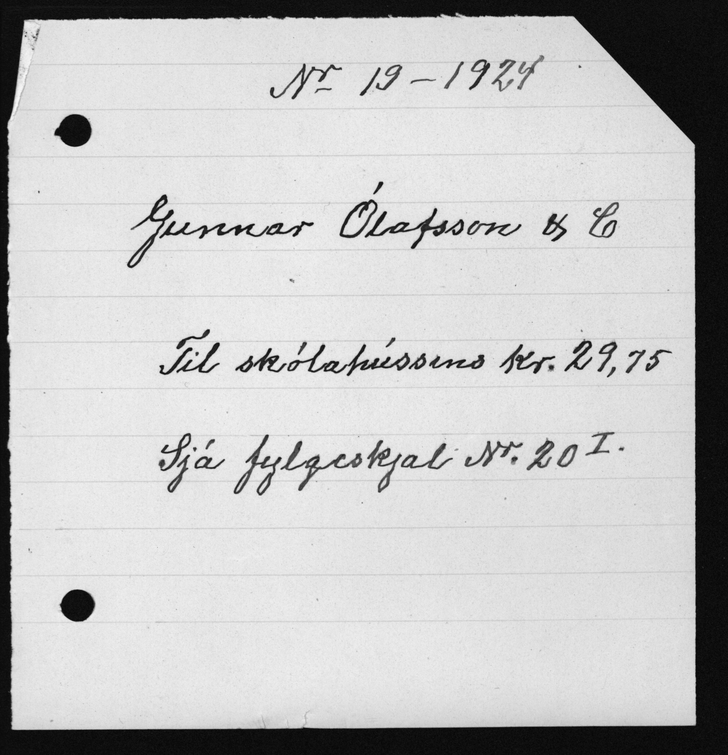 Nr 19 - 1924
Gunnar Ólafsson & C
Til skólahússins kr. 29,75
Sjá fylgiskjal Nr. 20 I.